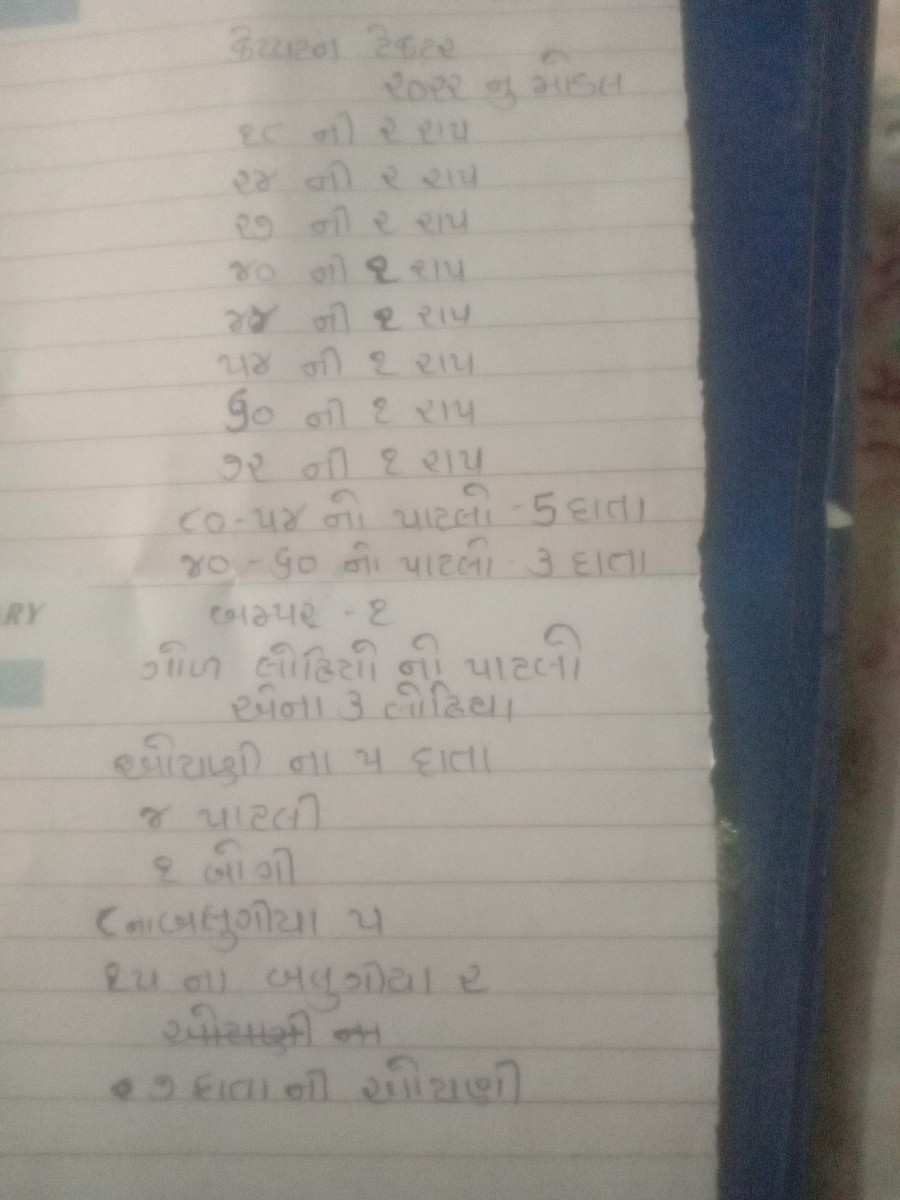 કેપ્ટન ટેકટર
૨૦૨૨ નુ મોડલ
૧૮ ની ૨ રાપ
૨૪ ની ૨ રાપ
૨૭ ની ૨ રાપ
૪૦ ની ૧ રાપ
૪૪ ની ૧ રાપ
૫૪ ની ૧ રાપ
૬૦ ની ૧ રાપ
૭૨ ની ૧ રાપ
૮૦-૫૪ નો પાટલો - 5 દાતા
૪૦ - ૬૦ નો પાટલો - ૩ દાતા
RY
બમ્પર - ૧
ગોળ લોઢિયો નો પાટલો
એના ૩ લોઢિયા
ઓરાણી ના ૫ દાતા
૪ પાટલી
૧ બોગી
૮ ના બલુગીયા ૫
૧૫ ના બલુગીયા ૨
૭ દાતા ની ઓરાણી